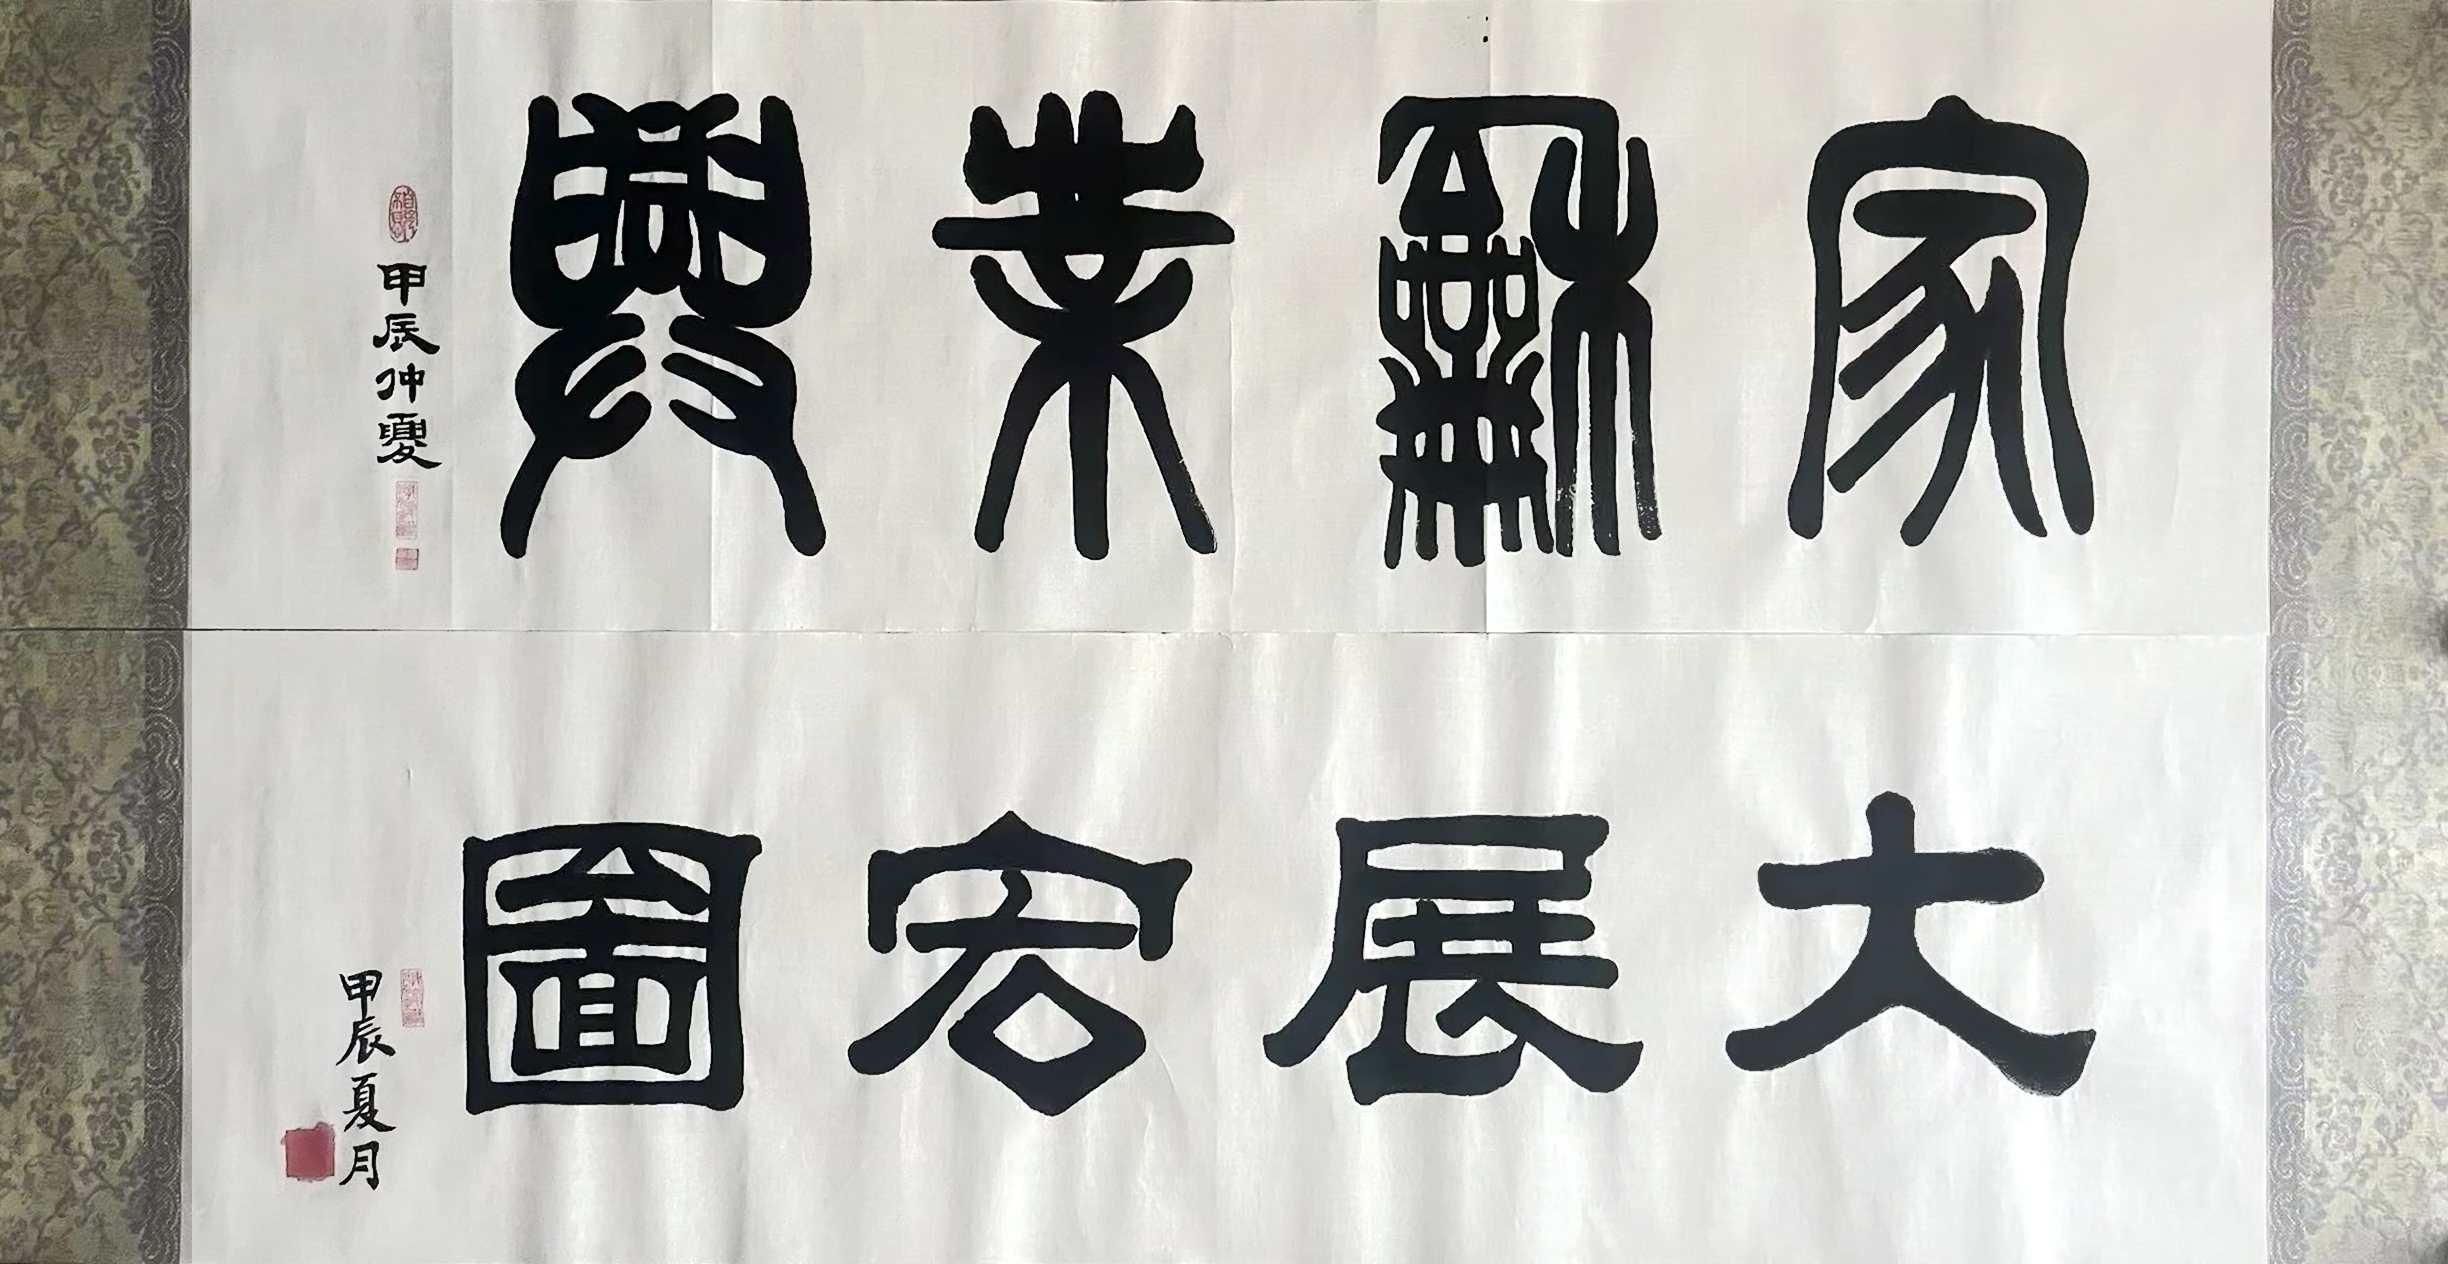 家龢業興
甲辰仲夏
大展宏圖
甲辰夏月